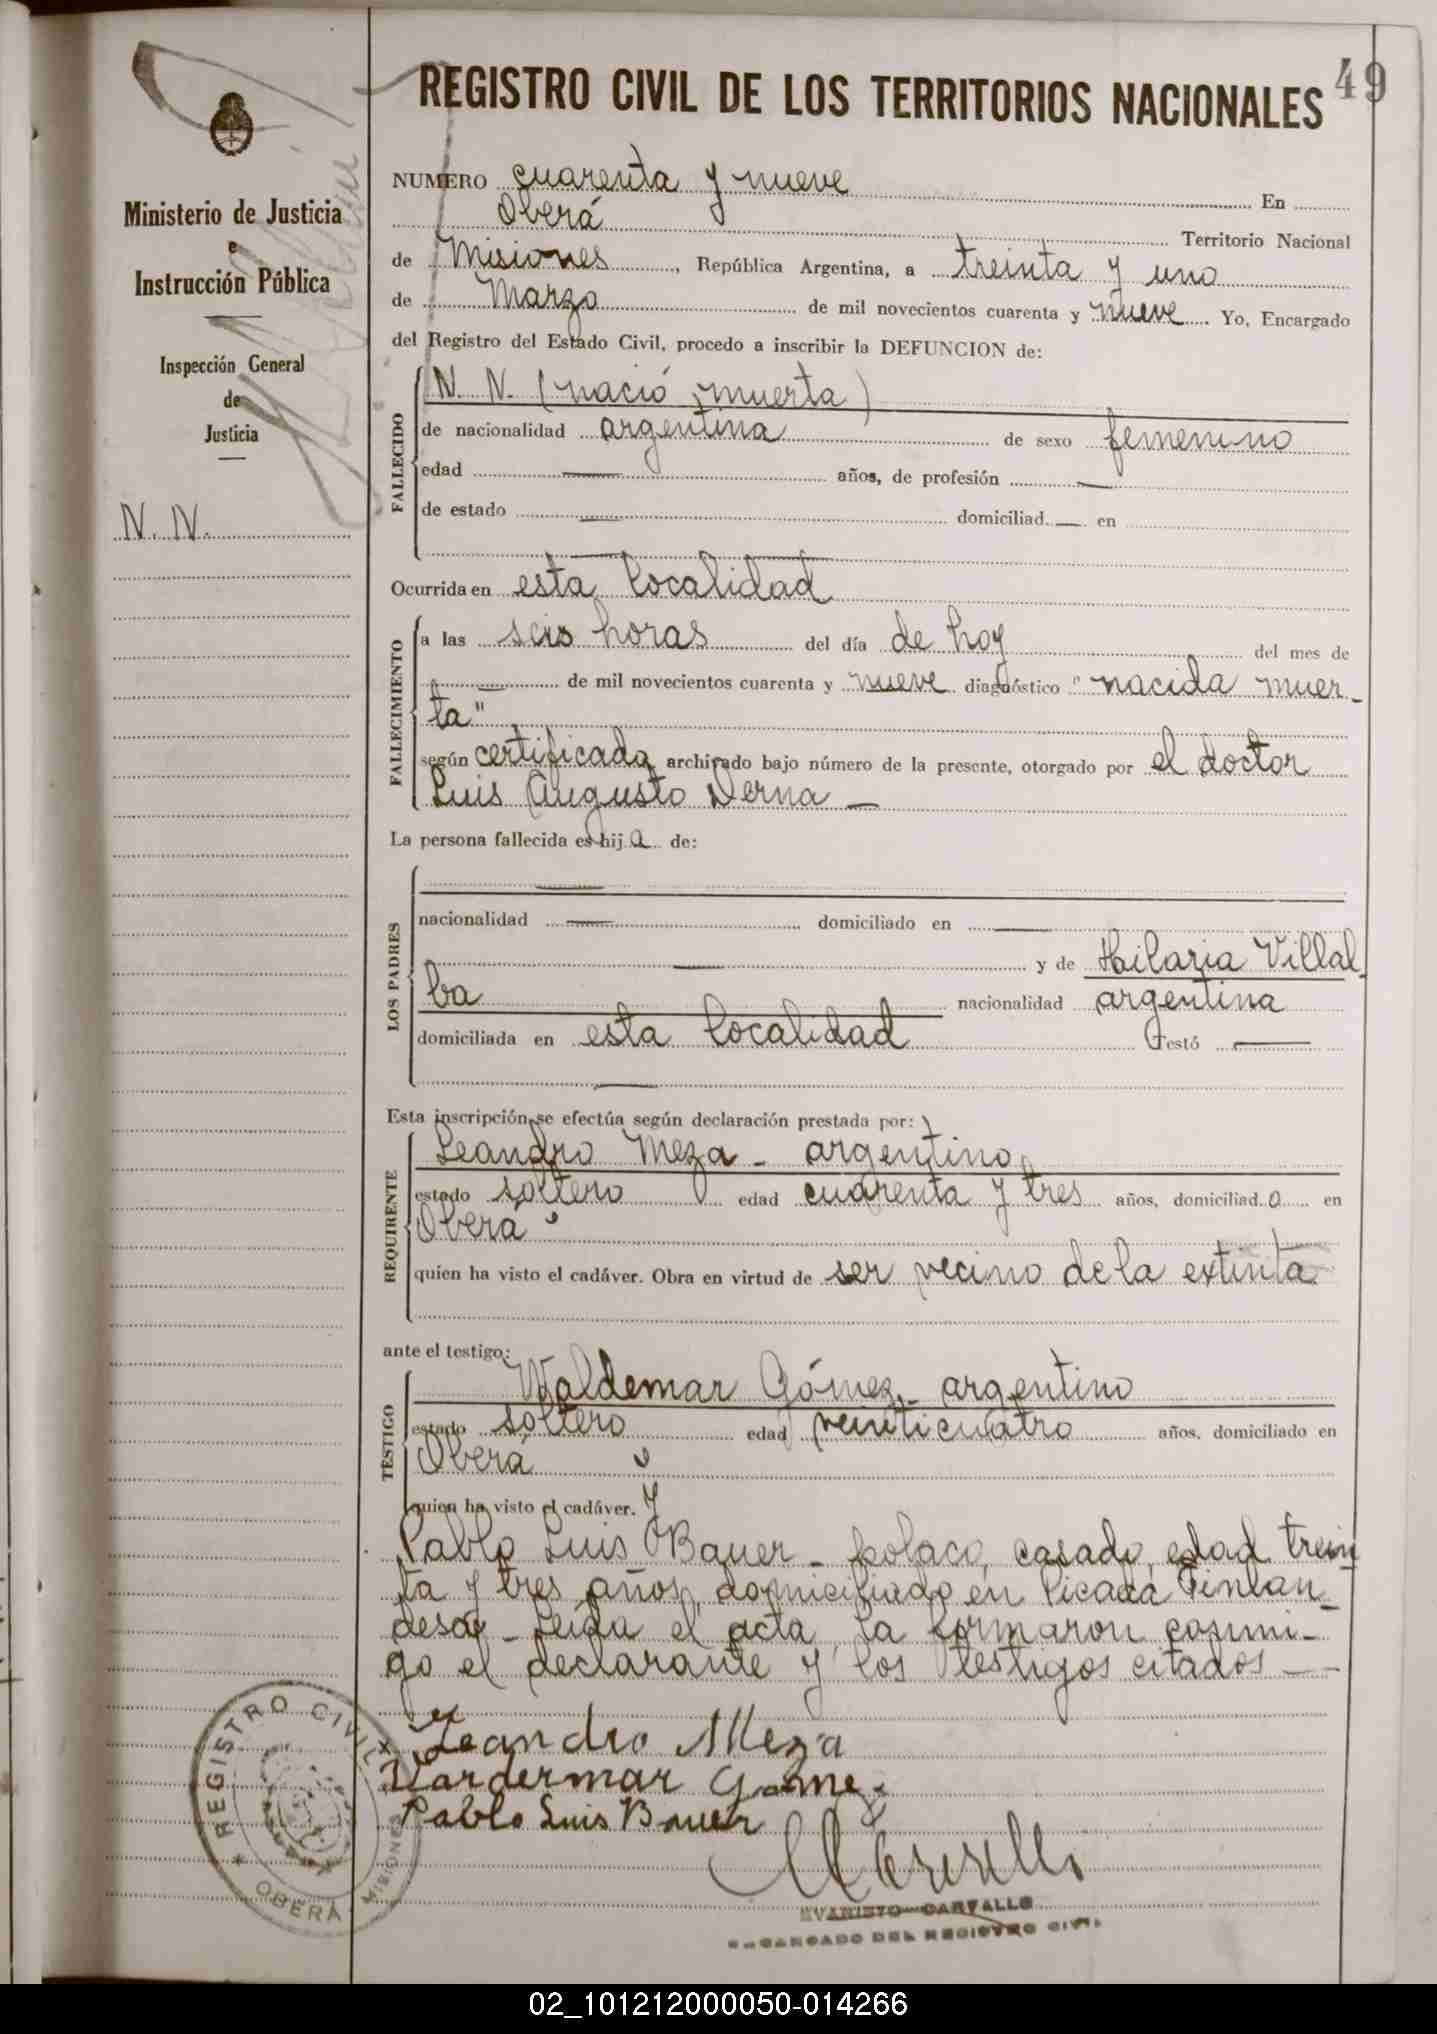 49
REGISTRO CIVIL DE LOS TERRITORIOS NACIONALES
Ministerio de Justicia
e
Instrucción Pública
Inspección General
de
Justicia
N. N.
NUMERO cuarenta y nueve En
Oberá Territorio Nacional
de Misiones, República Argentina, a treinta y uno
de Marzo de mil novecientos cuarenta y nueve Yo, Encargado
del Registro del Estado Civil, procedo a inscribir la DEFUNCION de:
FALLECIDO
N. N. (nació muerta)
de nacionalidad argentina de sexo femenino
edad — años, de profesión —
de estado — domiciliad — en
Ocurrida en esta localidad
FALLECIMIENTO
a las seis horas del día de hoy del mes de
— de mil novecientos cuarenta y nueve diagnóstico "nacida muer-
ta"
según certificado archivado bajo número de la presente, otorgado por el doctor
Luis Augusto Derna —
La persona fallecida es hija de:
LOS PADRES
—
nacionalidad — domiciliado en —
— y de Hilaria Villal-
ba nacionalidad argentina
domiciliada en esta localidad Testó —
—
Esta inscripción se efectúa según declaración prestada por:
REQUIRENTE
Leandro Meza - argentino,
estado soltero edad cuarenta y tres años, domiciliado en
Oberá
quien ha visto el cadáver. Obra en virtud de ser vecino de la extinta
ante el testigo:
TESTIGO
Waldemar Gómez - argentino
estado soltero edad veinticuatro años, domiciliado en
Oberá
quien ha visto el cadáver. y
Pablo Luis Bauer - polaco, casado, edad trein
ta y tres años, domiciliado en Picada Finlan-
desa - Leída el acta, la firmaron conmi-
go el declarante y los testigos citados —
Leandro Meza
Wardermar Gomez
Pablo Luis Bauer
EVARISTO CARVALLO
ENCARGADO DEL REGISTRO CIVIL
REGISTRO CIVIL
OBERÁ MISIONES
02_101212000050-014266